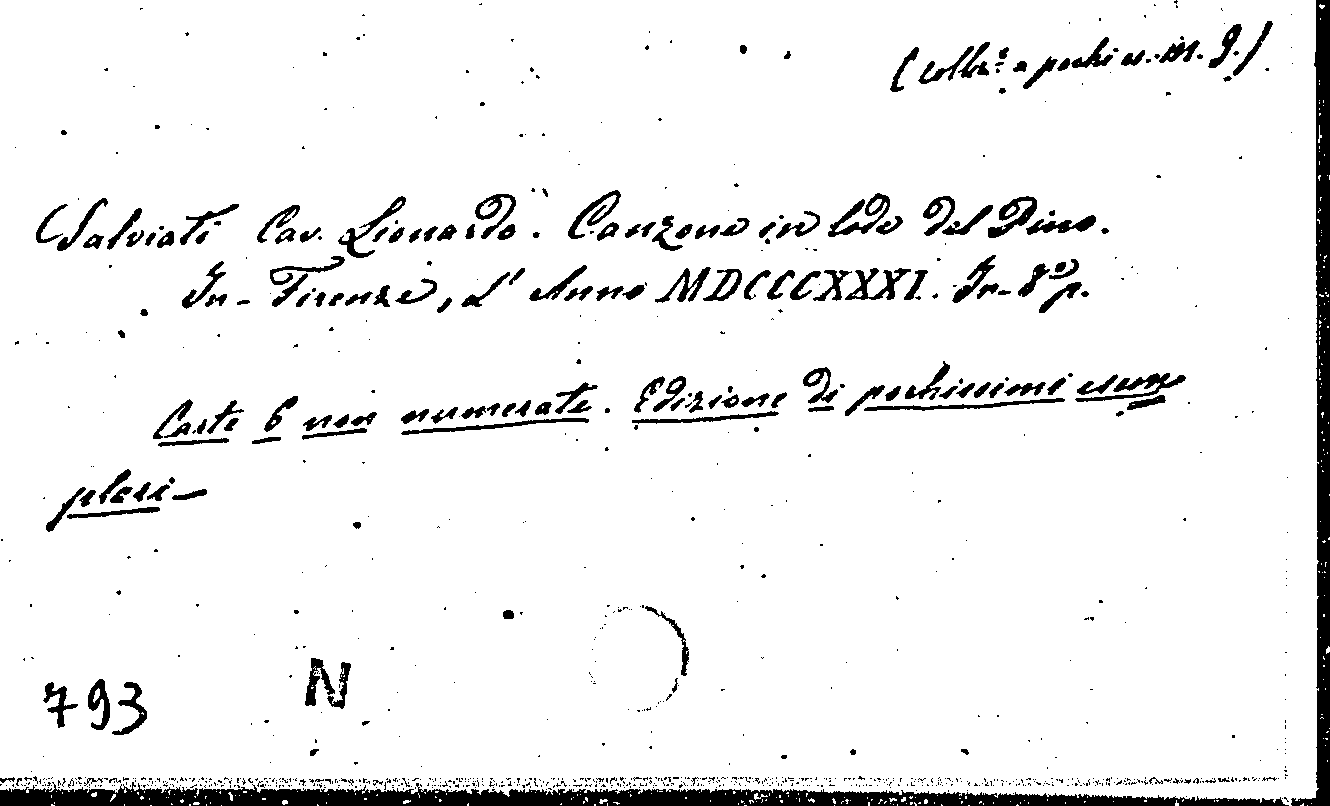 (Collez.e a pochi es. in. 9.)
Salviati Cav. Lionardo. Canzone in lode del Pino.
In-Firenze, L'Anno MDCCCXXXI. In-8º p.
Carte 6 non numerate. Edizione di pochissimi esem=
plari-
793 N